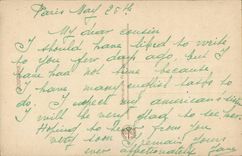 Paris May 25th
My dear cousin
I should have liked to write
to you few days ago. but I
have had not time because
I have many english tasks to
do. I expect my american's
I will be very glad to see her
Hoping to hear from you
very soon I remain yours
ever affectionately Jane